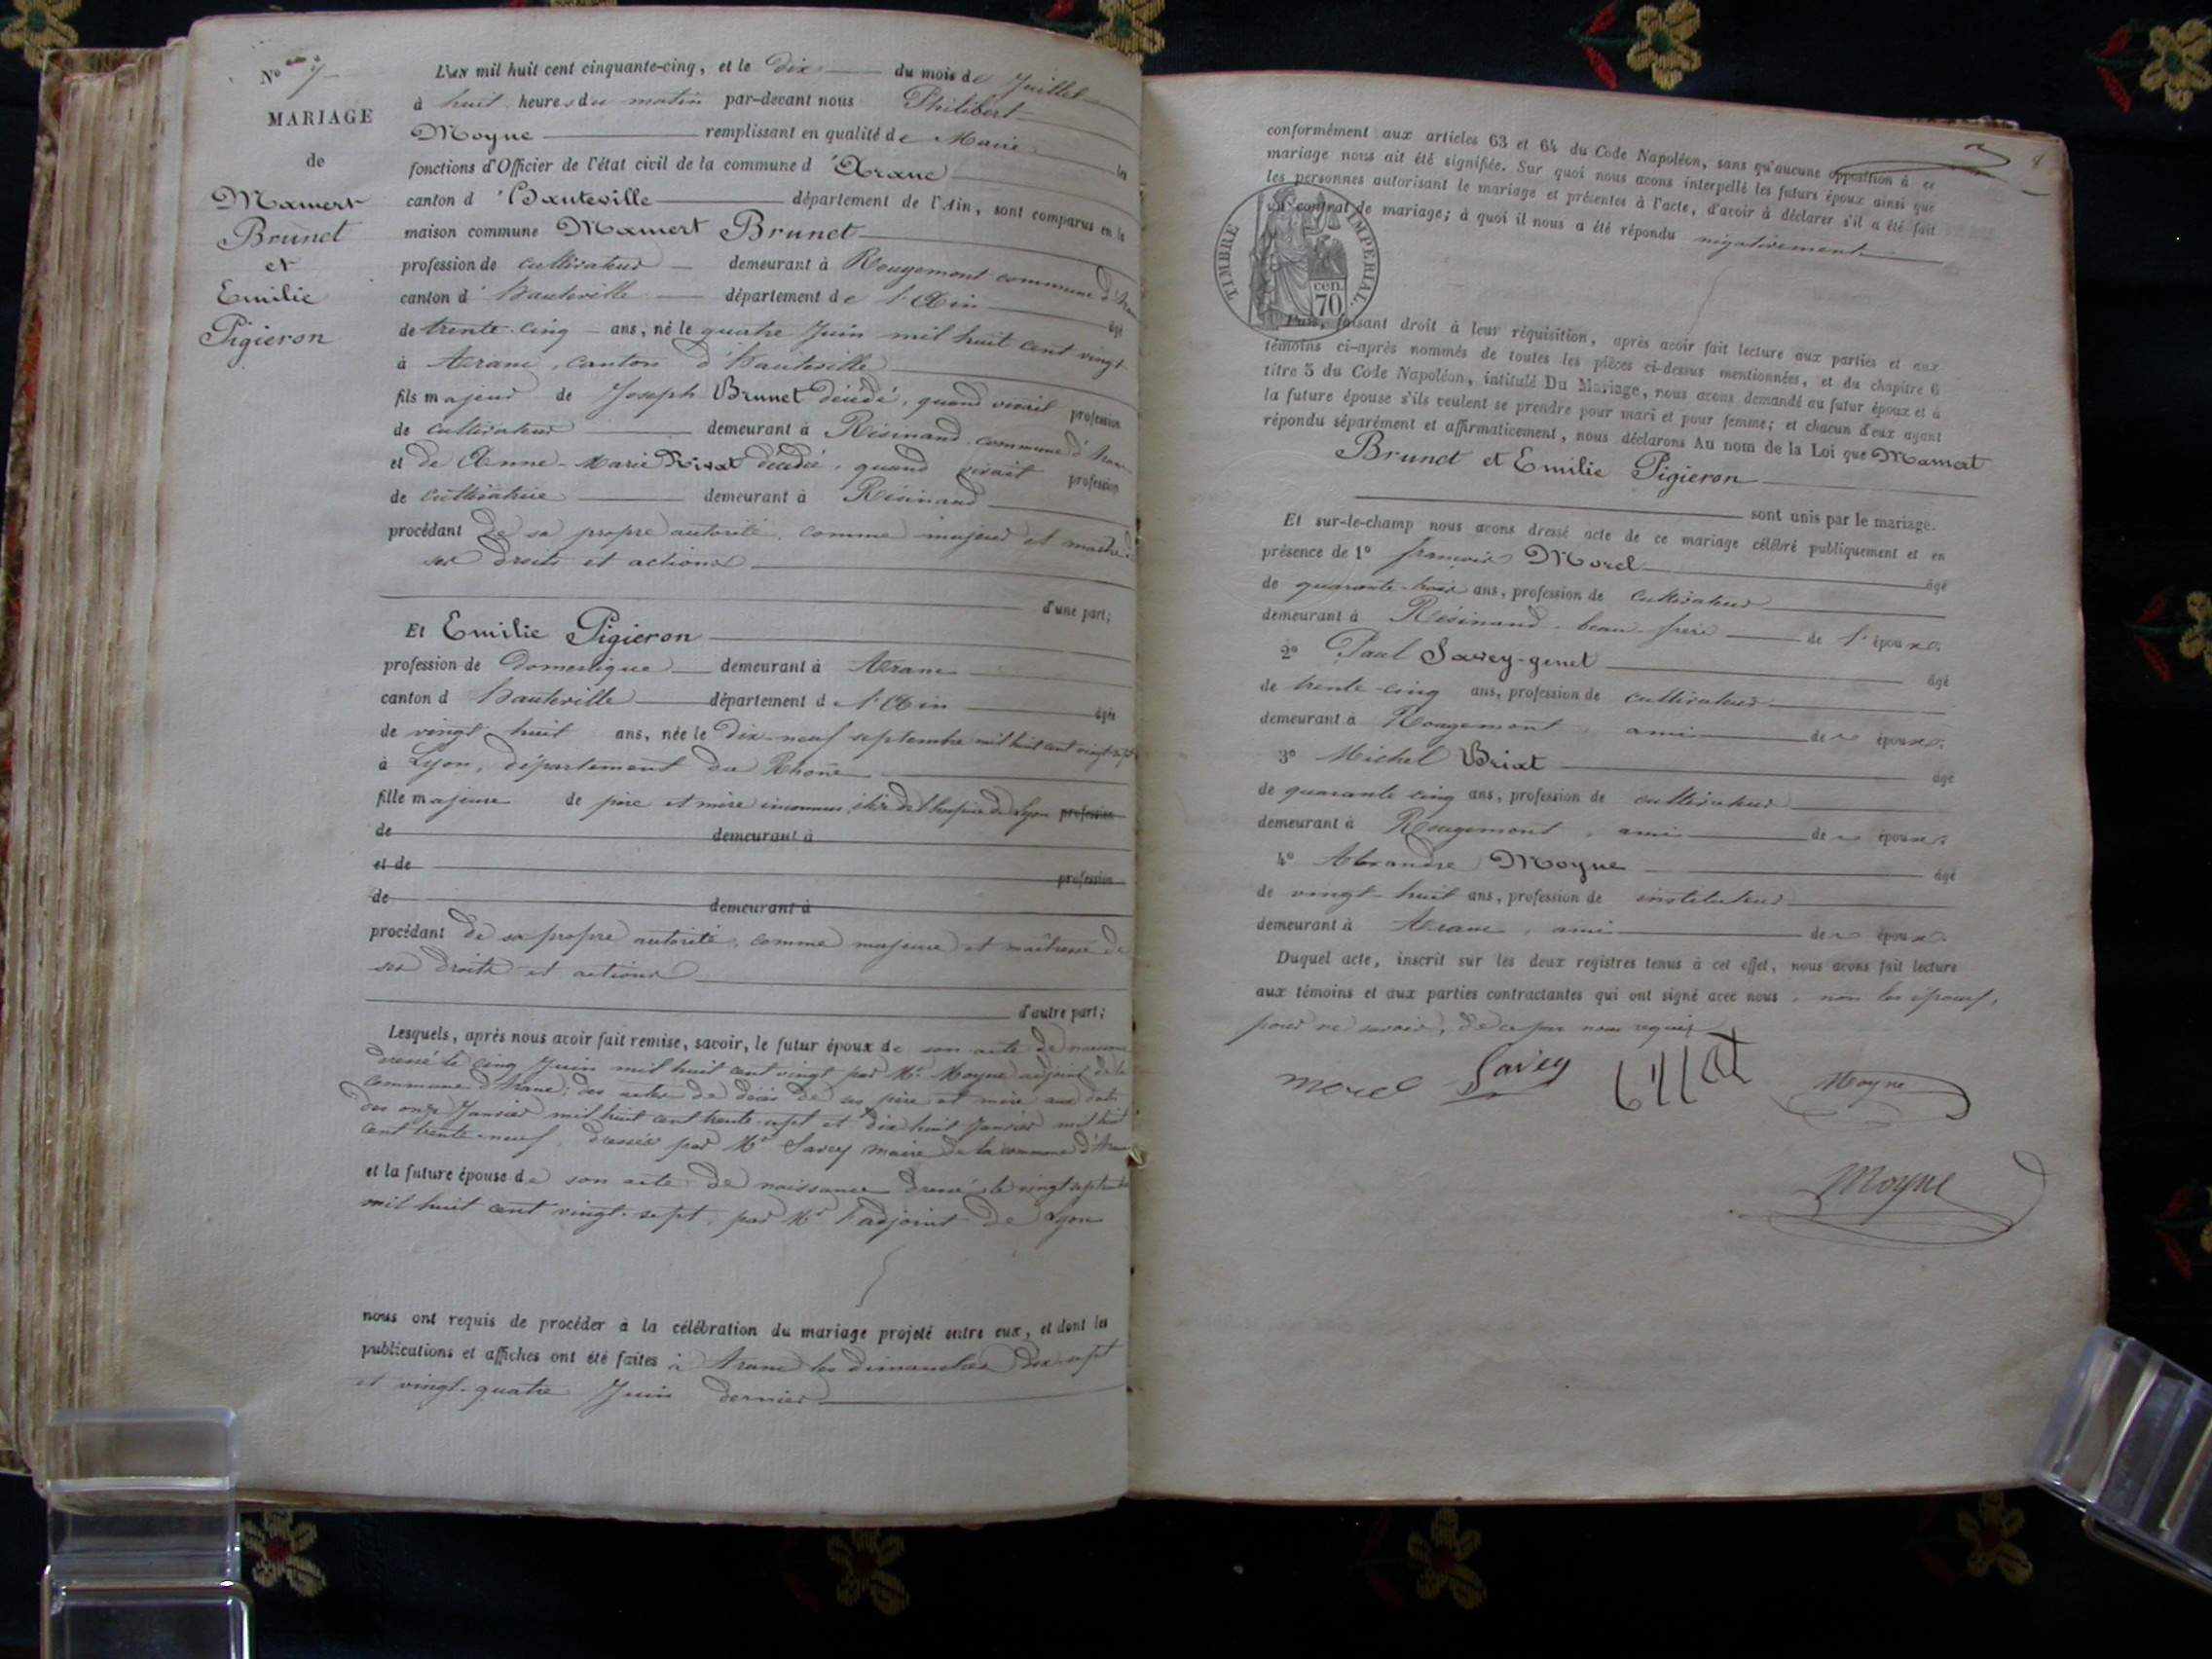 N° 7
MARIAGE
de
Mamert
Brunet
et
Emilie
Pigieron
L'an mil huit cent cinquante-cinq, et le dix du mois de Juillet
à huit heures du matin par-devant nous Philibert
Moyne remplissant en qualité de Maire les
fonctions d'Officier de l'état civil de la commune d'Aranc
canton d'Hauteville département de l'Ain, sont comparus en la
maison commune Mamert Brunet
profession de cultivateur demeurant à Rougemont commune d'Aranc
canton d'hauteville département de l'Ain âgé
de trente-cinq ans, né le quatre Juin mil huit cent vingt
à Aranc, canton d'hauteville
fils majeur de Joseph Brunet décédé, quand vivait profession
de cultivateur demeurant à Résinand, commune d'Aranc
et de Anne-Marie Rivat décédée, quand vivait profession
de cultivatrice demeurant à Résinand
procédant de sa propre autorité, comme majeur et maître de
ses droits et actions
d'une part;
Et Emilie Pigieron
profession de domestique demeurant à Aranc
canton d hauteville département de l'Ain âgée
de vingt-huit ans, née le dix-neuf septembre mil huit cent vingt-sept
à Lyon, département du Rhône
fille majeure de père et mère inconnus, élève de l'hospice de Lyon profession
de demeurant à
et de profession
de demeurant à
procédant de sa propre autorité, comme majeure et maîtresse de
ses droits et actions
d'autre part;
Lesquels, après nous avoir fait remise, savoir, le futur époux de son acte de naissance
dressé le cinq Juin mil huit cent vingt par Mr Moyne adjoint de la
commune d'Aranc; des actes de décès de ses père et mère aux dates
des onze Janvier mil huit cent trente-sept et dix huit Janvier mil huit
cent trente-neuf, dressés par Mr Savey maire de la commune d'Aranc
et la future épouse de son acte de naissance dressé le vingt septembre
mil huit cent vingt-sept, par Mr l'adjoint de Lyon
nous ont requis de procéder à la célébration du mariage projeté entre eux, et dont les
publications et affiches ont été faites à Aranc les dimanches dix-sept
et vingt-quatre Juin dernier
conformément aux articles 63 et 64 du Code Napoléon, sans qu'aucune opposition à ce
mariage nous ait été signifiée. Sur quoi nous avons interpellé les futurs époux ainsi que
les personnes autorisant le mariage et présentes à l'acte, d'avoir à déclarer s'il a été fait
un contrat de mariage; à quoi il nous a été répondu négativement
TIMBRE IMPÉRIAL.
cen.
70
Puis, faisant droit à leur réquisition, après avoir fait lecture aux parties et aux
témoins ci-après nommés de toutes les pièces ci-dessus mentionnées, et du chapitre 6
titre 5 du Code Napoléon, intitulé Du Mariage, nous avons demandé au futur époux et à
la future épouse s'ils veulent se prendre pour mari et pour femme; et chacun d'eux ayant
répondu séparément et affirmativement, nous déclarons Au nom de la Loi que Mamert
Brunet et Emilie Pigieron
sont unis par le mariage.
Et sur-le-champ nous avons dressé acte de ce mariage célébré publiquement et en
présence de 1° françois Morel âgé
de quarante-trois ans, profession de cultivateur
demeurant à Résinand, beau-frère de l'époux.
2° Paul Savey-genet âgé
de trente-cinq ans, profession de cultivateur
demeurant à Rougemont, ami des époux.
3° Michel Brixt âgé
de quarante cinq ans, profession de cultivateur
demeurant à Rougemont, ami des époux.
4° Alexandre Moyne âgé
de vingt-huit ans, profession de instituteur
demeurant à Aranc, ami des époux.
Duquel acte, inscrit sur les deux registres tenus à cet effet, nous avons fait lecture
aux témoins et aux parties contractantes qui ont signé avec nous, non les époux,
pour ne savoir, de ce par nous requis
morel Savey Moyne
Moyne